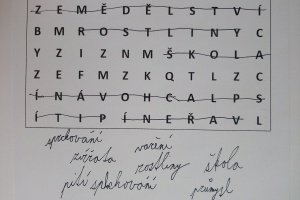 Z E M Ě D Ě L S T V Í
B M R O S T L I N Y C
Y Z I Z N M Š K O L A
Z E F M Z K Q T L Z C
Í N Á V O H C A L P S
Í T I P Í N E Ř A V L
sprchování vaření
zvířata rostliny škola
pití splachování průmysl